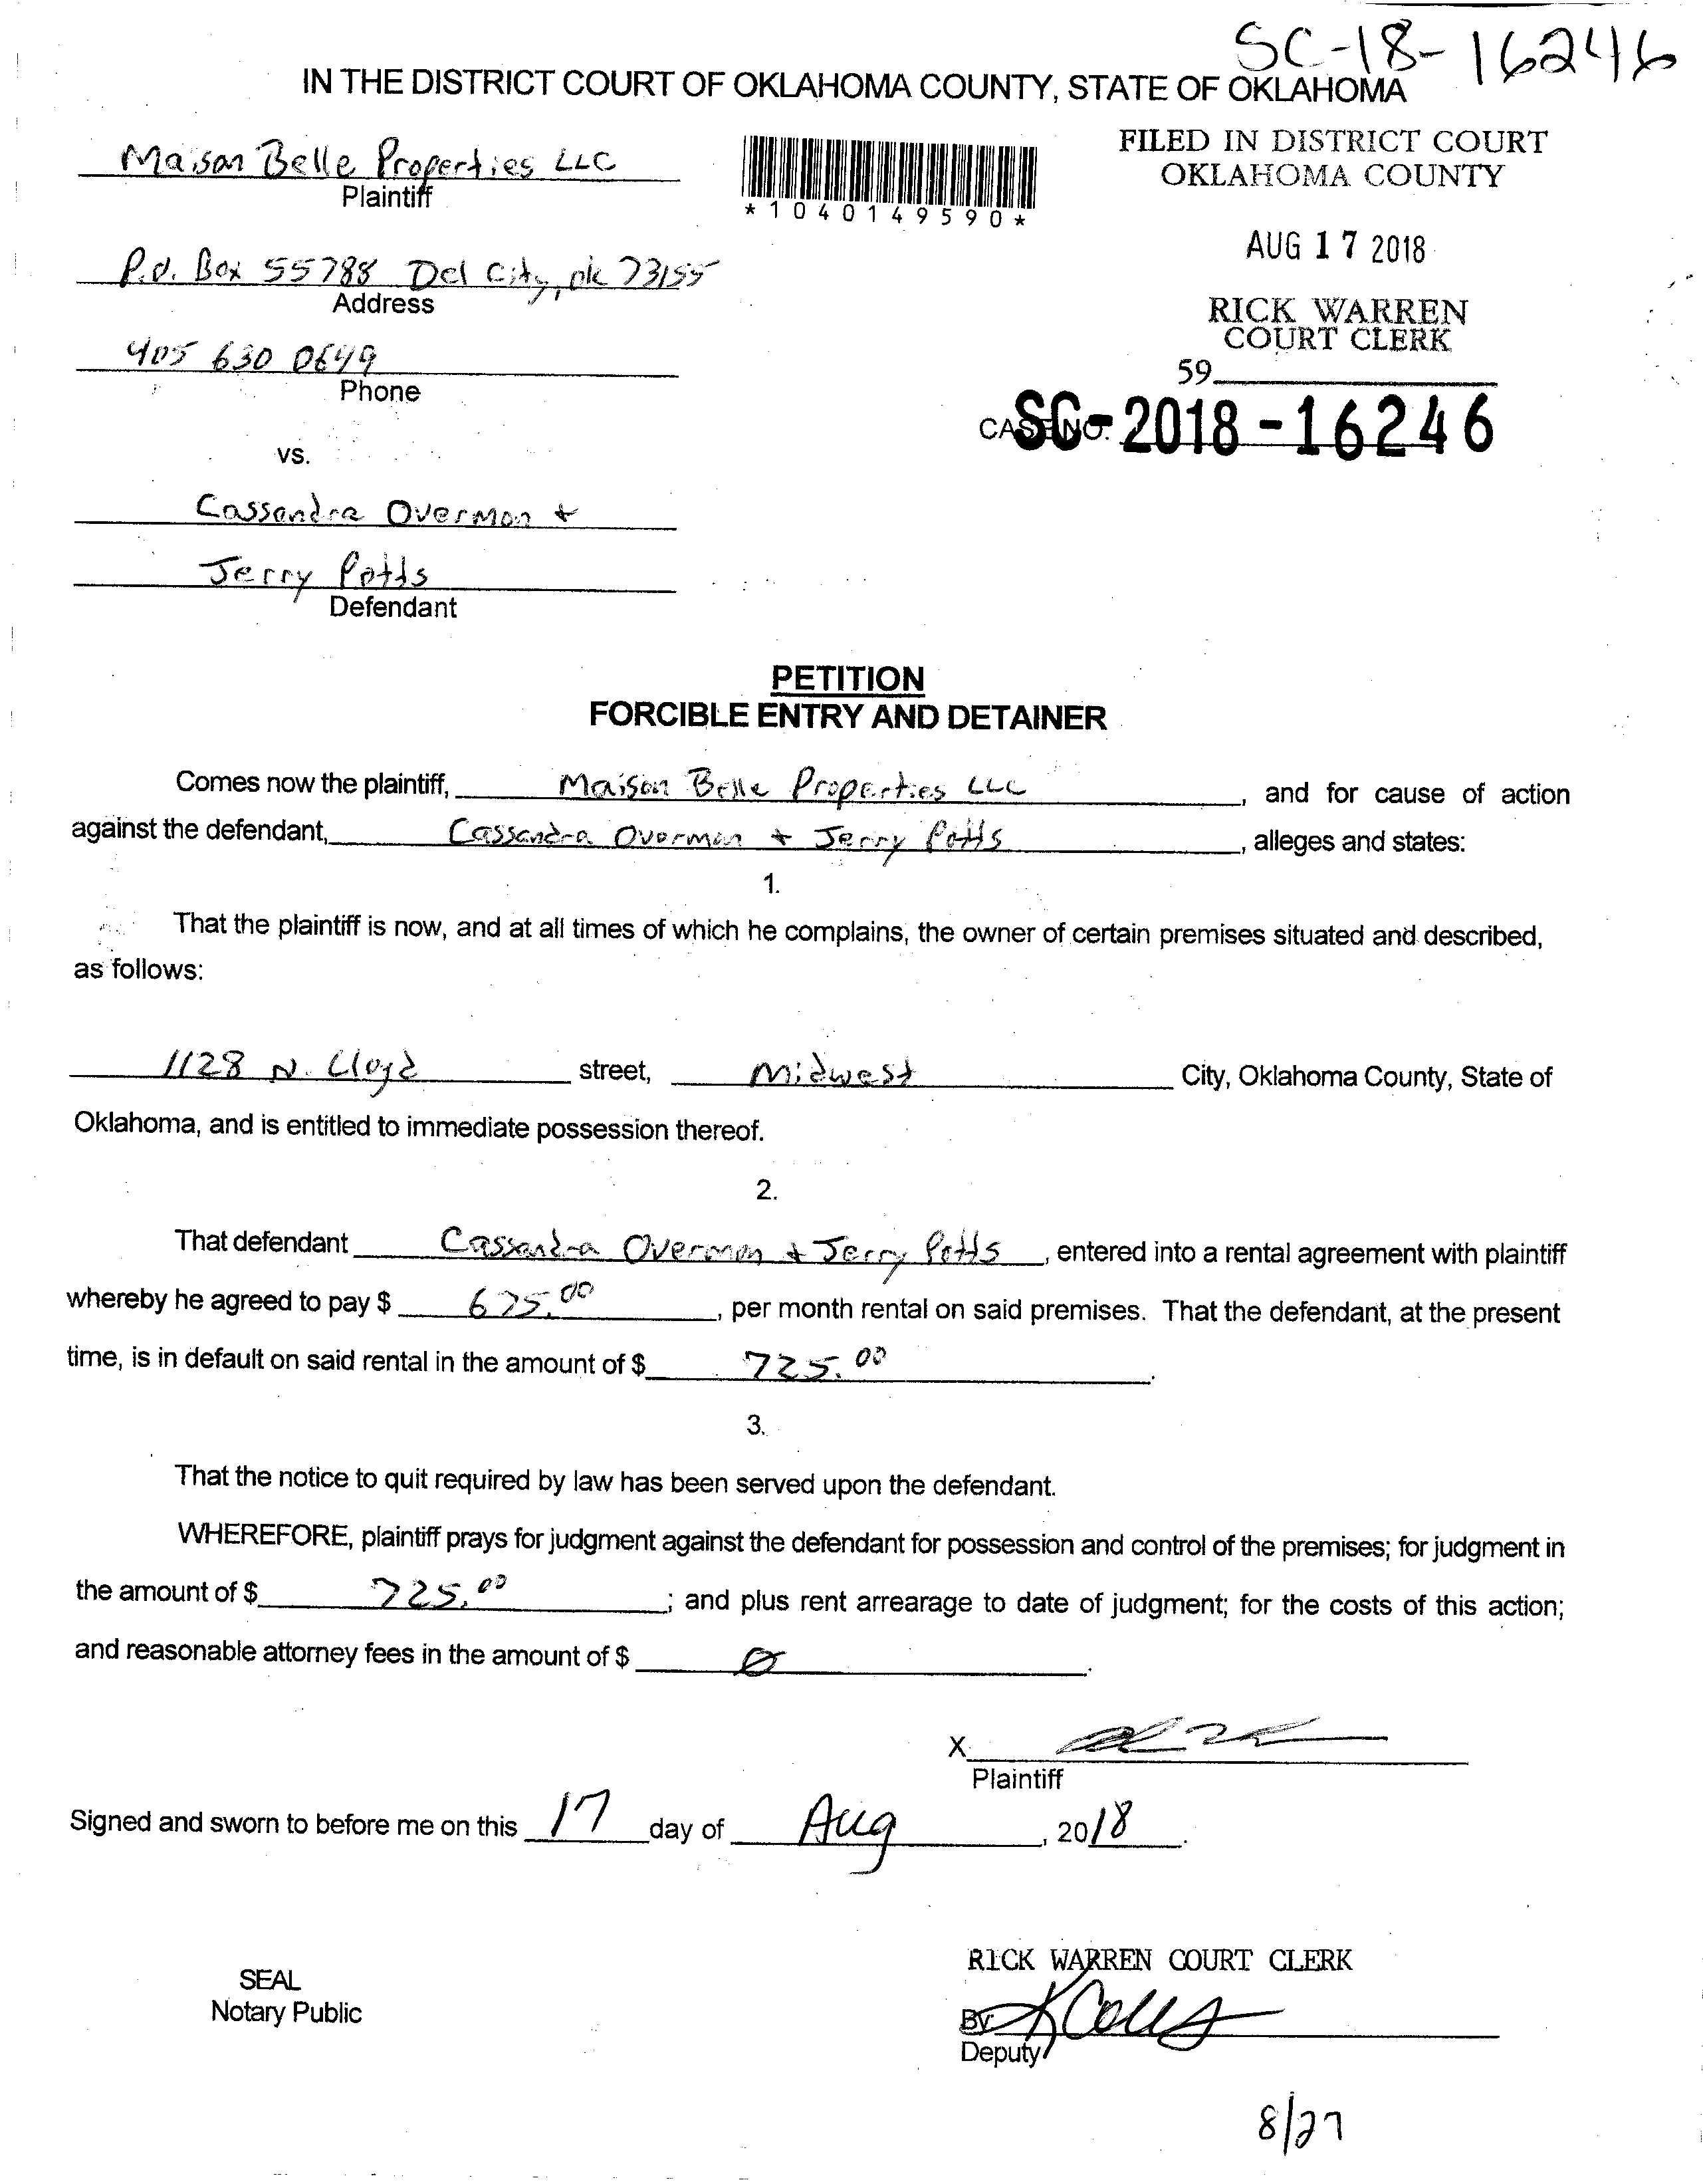 SC-18-16246
IN THE DISTRICT COURT OF OKLAHOMA COUNTY, STATE OF OKLAHOMA
Maison Belle Properties LLC
Plaintiff
*1040149590*
FILED IN DISTRICT COURT
OKLAHOMA COUNTY
AUG 17 2018
P.O. Box 55788 Del City, ok 73155
Address
RICK WARREN
COURT CLERK
405 630 0649
Phone
59
CASE NO. SC-2018-16246
vs.
Cassandra Overman +
Jerry Potts
Defendant
PETITION
FORCIBLE ENTRY AND DETAINER
Comes now the plaintiff, Maison Belle Properties LLC, and for cause of action
against the defendant, Cassandra Overman + Jerry Potts, alleges and states:
1.
That the plaintiff is now, and at all times of which he complains, the owner of certain premises situated and described,
as follows:
1128 N. Lloyd street, Midwest City, Oklahoma County, State of
Oklahoma, and is entitled to immediate possession thereof.
2.
That defendant Cassandra Overman + Jerry Potts, entered into a rental agreement with plaintiff
whereby he agreed to pay $ 675.00, per month rental on said premises. That the defendant, at the present
time, is in default on said rental in the amount of $ 725.00.
3.
That the notice to quit required by law has been served upon the defendant.
WHEREFORE, plaintiff prays for judgment against the defendant for possession and control of the premises; for judgment in
the amount of $ 725.00; and plus rent arrearage to date of judgment; for the costs of this action;
and reasonable attorney fees in the amount of $ Ø.
X
Plaintiff
Signed and sworn to before me on this 17 day of Aug, 2018.
SEAL
Notary Public
RICK WARREN COURT CLERK
By:
Deputy
8/27